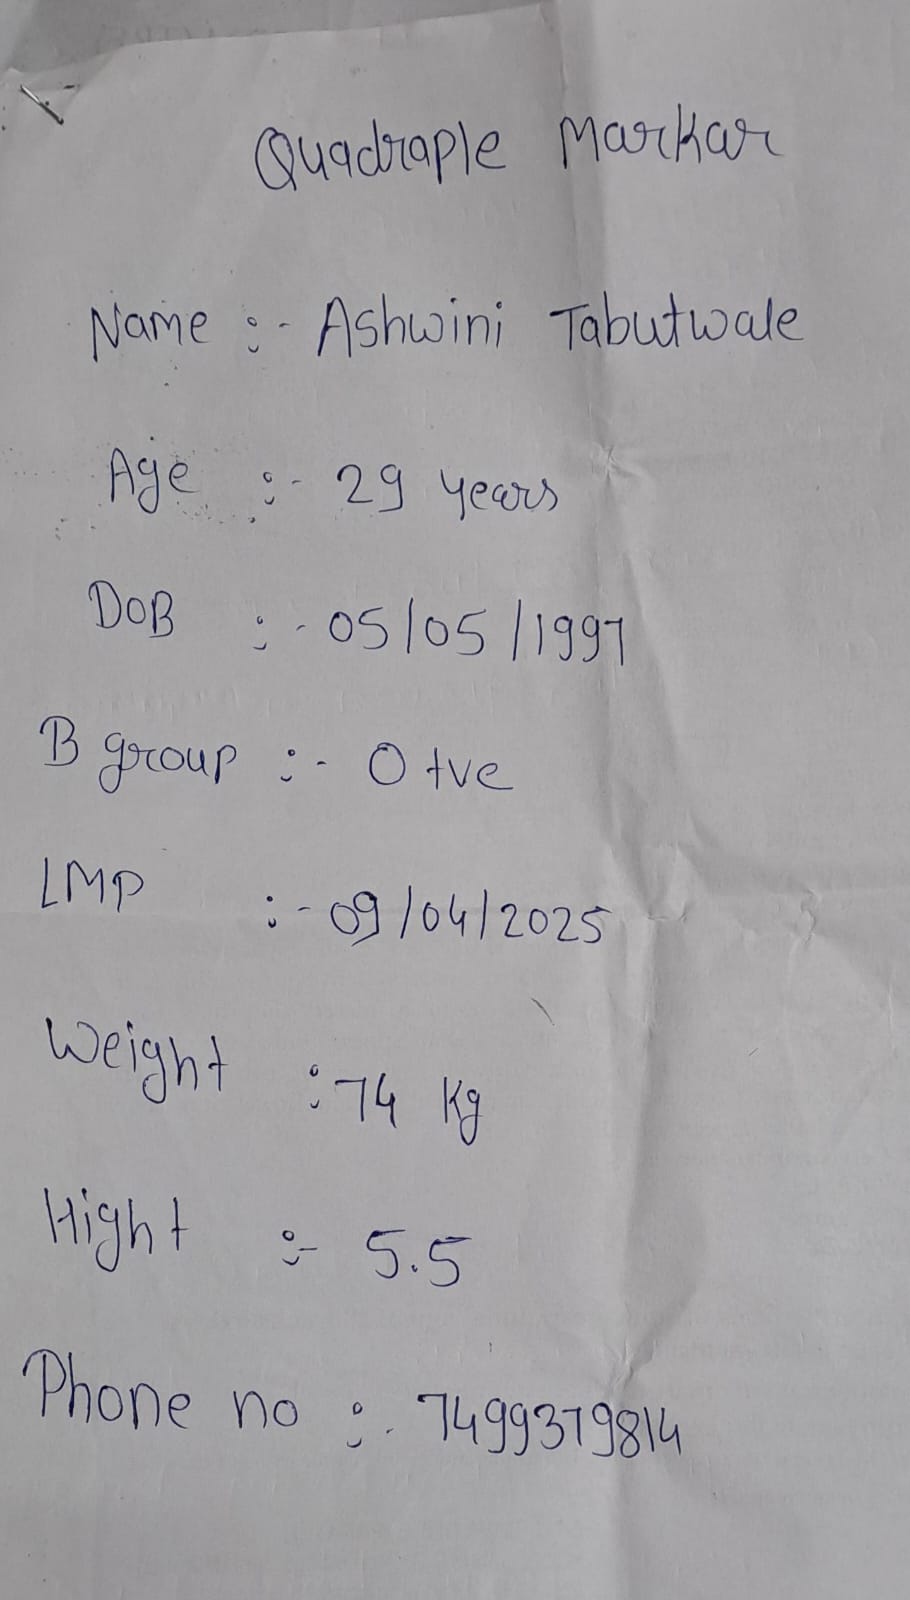 Quadraple Markar
Name :- Ashwini Tabutwale
Age :- 29 years
DOB :- 05/05/1997
B group :- O +ve
LMP :- 09/04/2025
Weight : 74 Kg
Hight :- 5.5
Phone no :- 7499379814